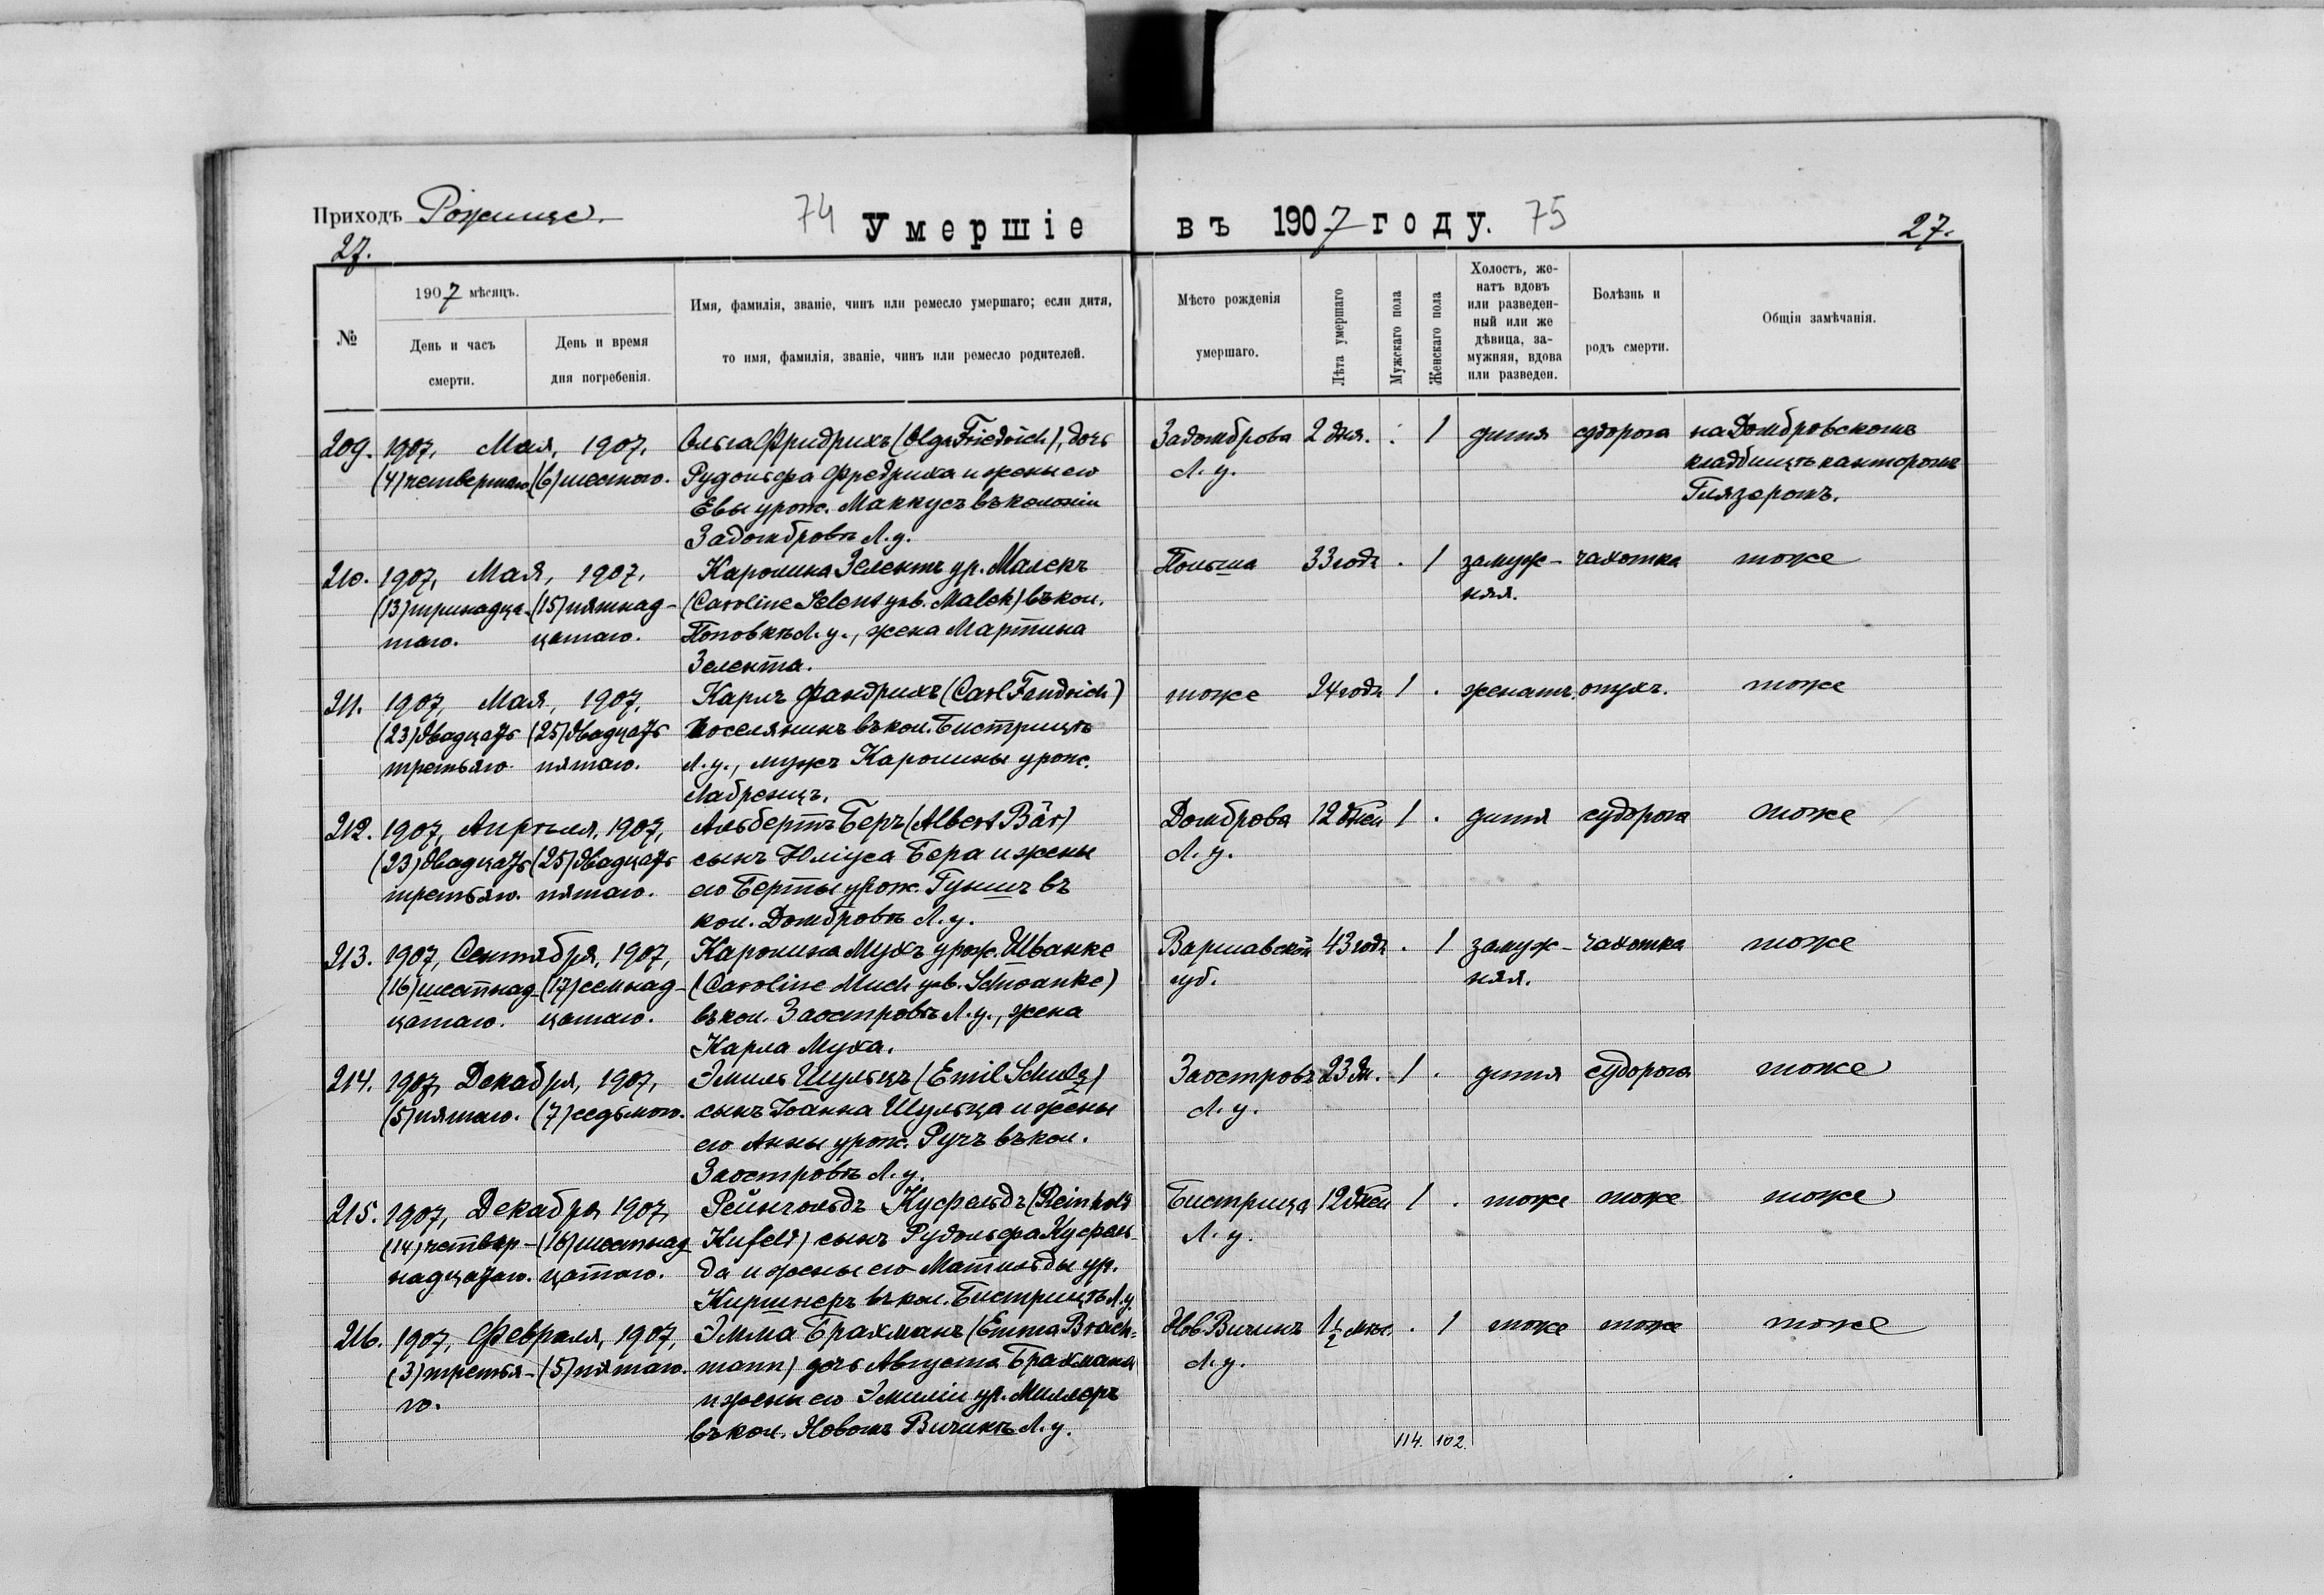 Приходъ Рожище.
74
Умершіе
въ 1907 году.
75
27.
27.
№
1907 мѣсяцъ.
День и часъ смерти.
День и время дня погребенія.
Имя, фамилія, званіе, чинъ или ремесло умершаго; если дитя,
то имя, фамилія, званіе, чинъ или ремесло родителей.
Мѣсто рожденія умершаго.
Лѣта умершаго
Мужскаго пола
Женскаго пола
Холостъ, же-
натъ вдовъ
или разведен-
ный или же
дѣвица, за-
мужняя, вдова
или разведен.
Болѣзнь и родъ смерти.
Общія замѣчанія.
209. 1907, Мая, 1907, Ольга Фридрихъ (Olga Friedrich), дочь Задомброва 2 дня. . 1 дитя судорога на Домбровскомъ
(4) четвертаго (6) шестого. Рудольфа Фредриха и жены его Л. у. кладбищѣ канторомъ
Евы урож. Маккусъ въ колоніи Глязеромъ.
Задомбровѣ Л. у.
210. 1907, Мая, 1907, Каролина Зелентъ ур. Малекъ Польша 33 года . 1 замуж- чахотка тоже
(13) тринадца- (15) пятнад- (Caroline Selent geb. Malek) въ кол. няя.
таго. цатаго. Поповкѣ Л. у., жена Мартина
Зелента.
211. 1907, Мая, 1907, Карлъ Фандрихъ (Carl Fandrich) тоже 24 года 1 . женатъ. опухъ. тоже
(23) двадцать (25) двадцать поселянинъ въ кол. Бистрицѣ
третьяго. пятаго. Л. у., мужъ Каролины урож.
Лабренцъ.
212. 1907, Апрѣля, 1907, Альбертъ Беръ (Albert Bär) Домброва 12 дней 1 . дитя судорога тоже
(23) двадцать (25) двадцать сынъ Юліуса Бера и жены Л. у.
третьяго. пятаго. его Берты урож. Гуншъ въ
кол. Домбровѣ Л. у.
213. 1907, Сентября, 1907, Каролина Мухъ урож. Шванке Варшавской 43 года . 1 замуж- чахотка тоже
(16) шестнад- (17) семнад- (Caroline Much geb. Schwanke) губ. няя.
цатаго. цатаго. въ кол. Заостровѣ Л. у., жена
Карла Муха.
214. 1907, Декабря, 1907, Эмиль Шульцъ (Emil Schulz) Заостровъ 23 дн. 1 . дитя судорога тоже
(5) пятаго. (7) седьмого. сынъ Іоанна Шульца и жены Л. у.
его Анны урож. Ручъ въ кол.
Заостровѣ Л. у.
215. 1907, Декабря 1907, Рейнгольдъ Куфельдъ (Reinhold Бистрица 12 дней 1 . тоже тоже тоже
(14) четвер- (16) шестнад- Kufeld) сынъ Рудольфа Куфель- Л. у.
надцатаго. цатаго. да и жены его Матильды ур.
Киршнеръ въ кол. Бистрицѣ Л. у.
216. 1907, Февраля, 1907, Эмма Брахманъ (Emma Brach- Нов. Вичинъ 1½ мѣс. . 1 тоже тоже тоже
(3) третья- (5) пятаго. mann) дочь Августа Брахмана Л. у.
го. и жены его Эмиліи ур. Миллеръ
въ кол. Новомъ Вичинѣ Л. у.
114. 102.